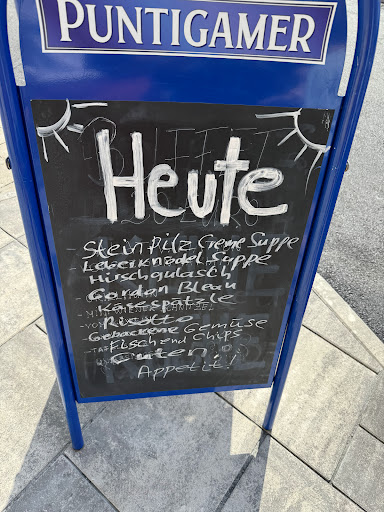 PUNTIGAMER
Heute
Steinpilz Creme Suppe
Leberknödel Suppe
Hirschgulasch
Cordon Bleau
Käsespätzle
Risotto
Gebackene Gemüse
Fisch end Chips
Guten
Appetit!